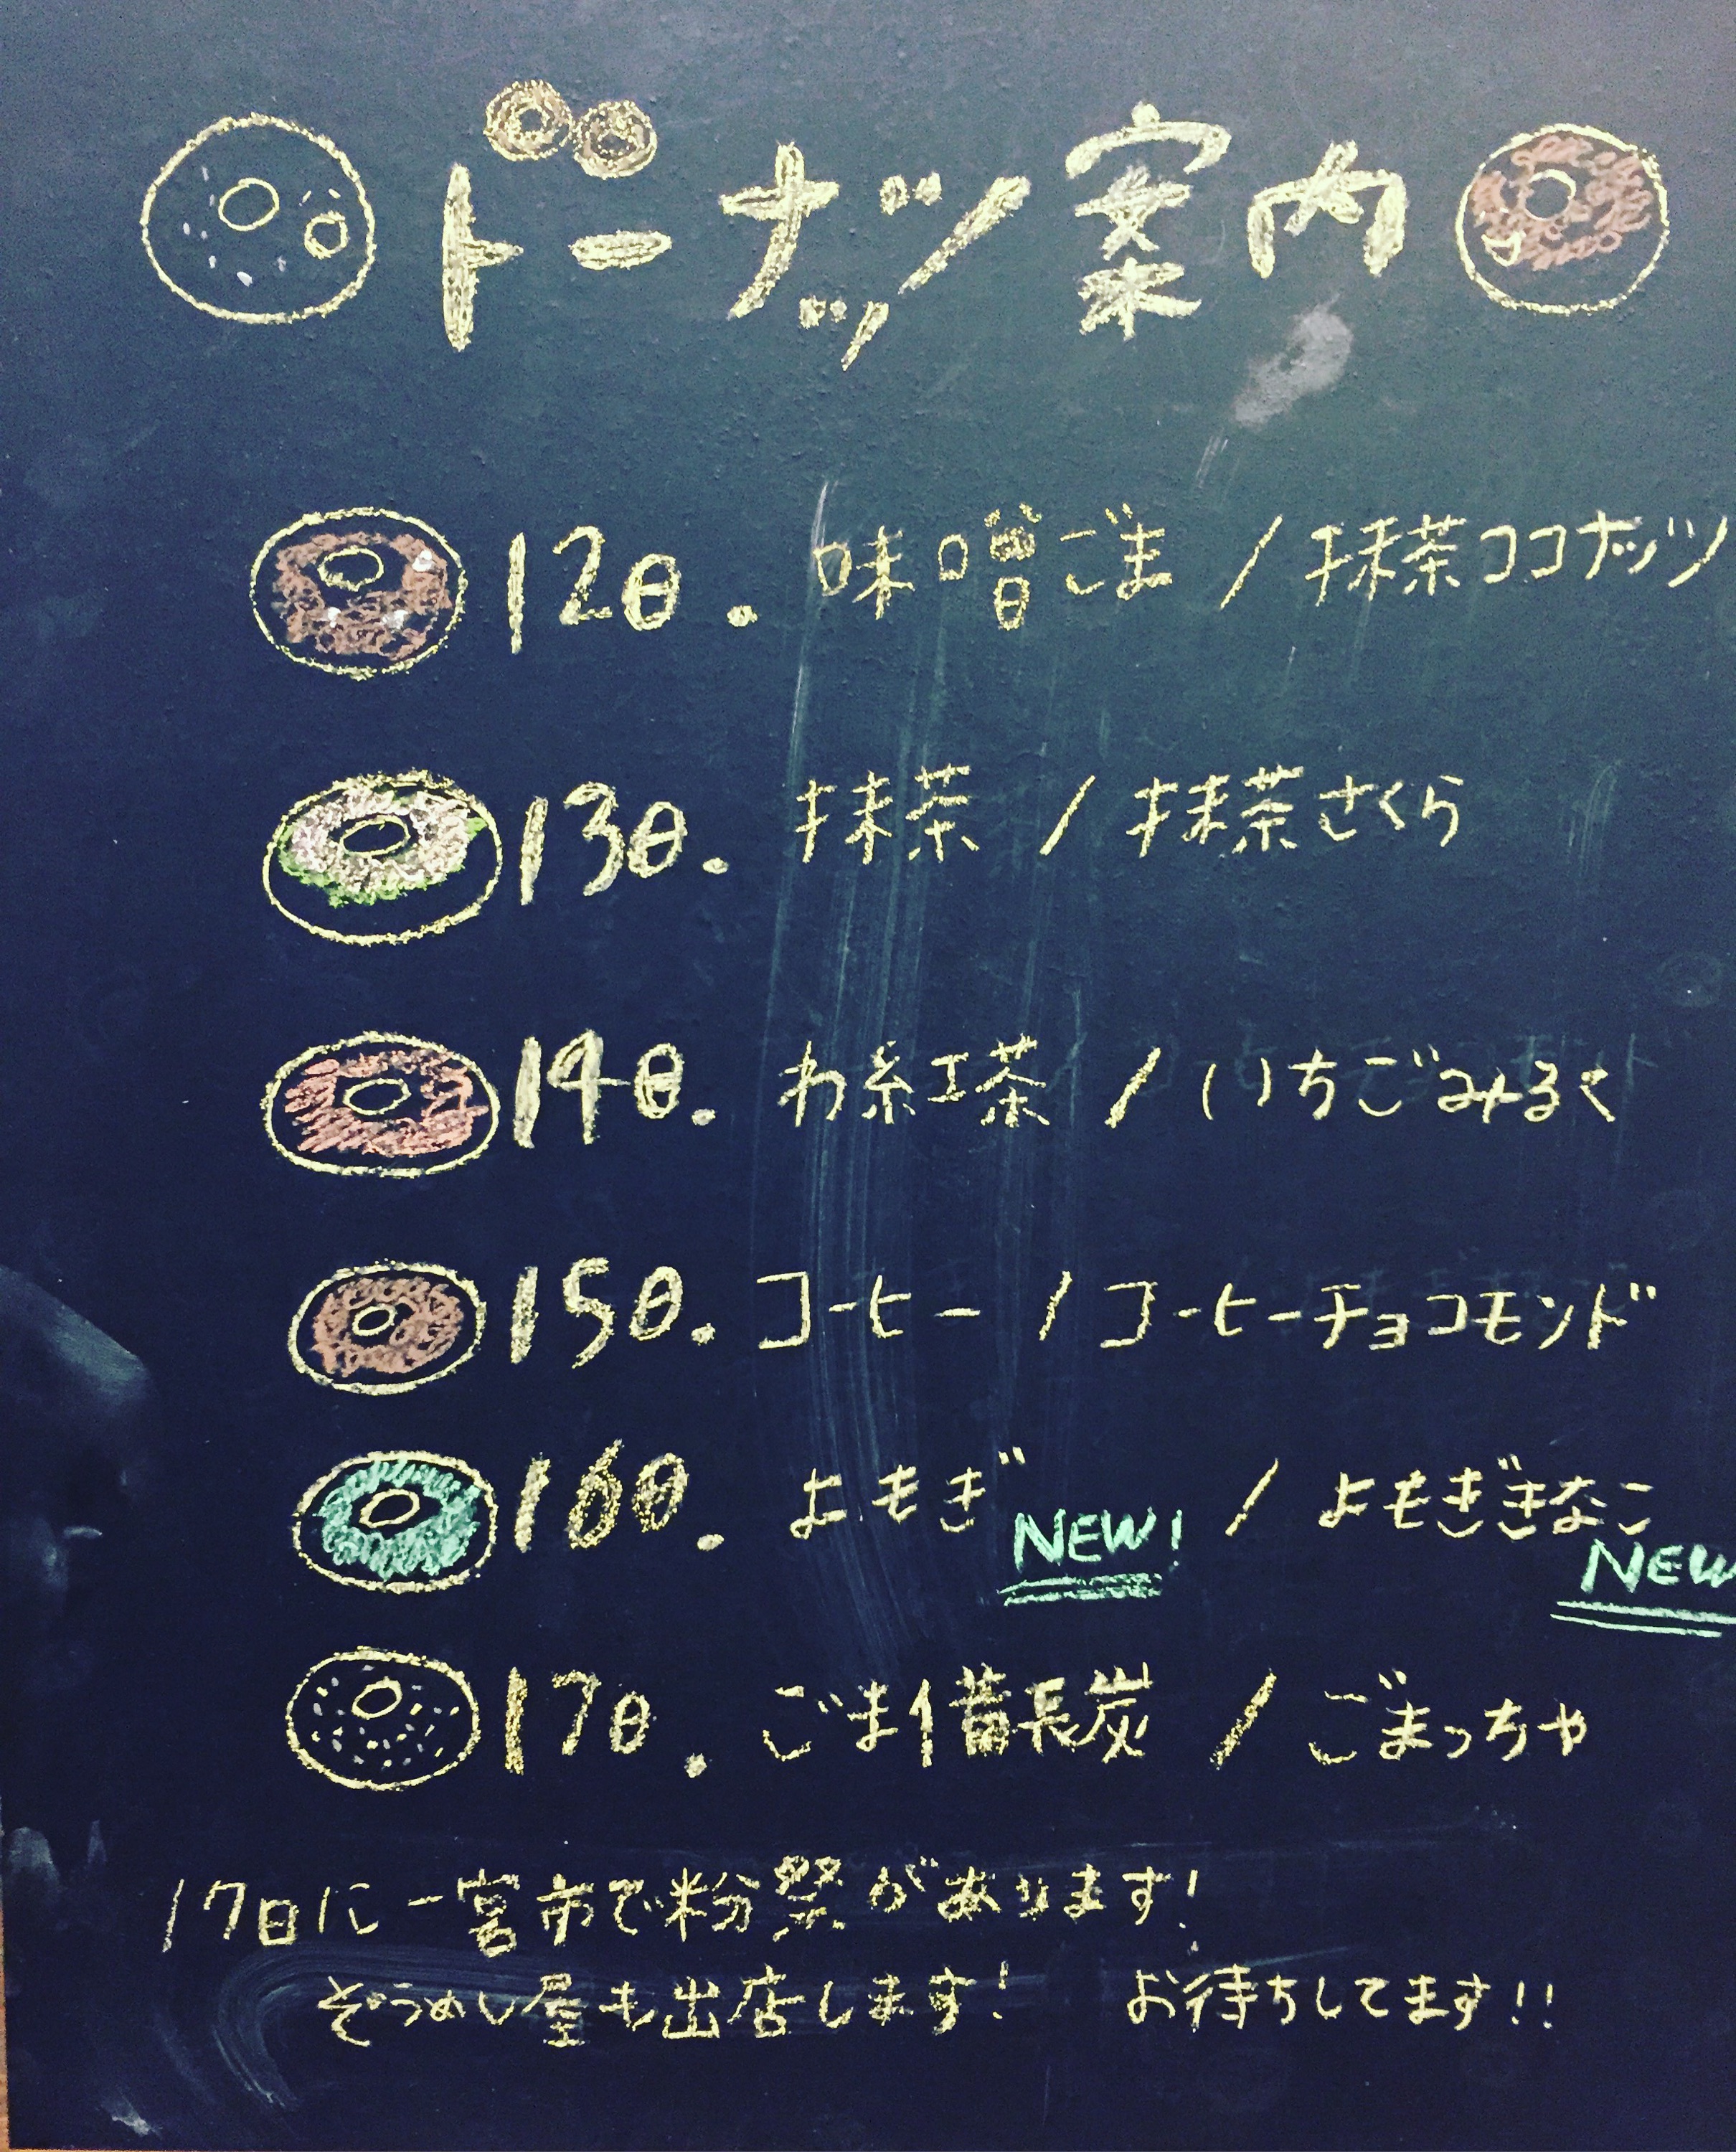 ドーナッツ案内
12日. 味噌ごま / 抹茶ココナッツ
13日. 抹茶 / 抹茶さくら
14日. わ紅茶 / いちごみるく
15日. コーヒー / コーヒーチョコモンド
16日. よもぎ NEW! / よもぎきなこ NEW
17日. ごま備長炭 / ごまっちゃ
17日に一宮市で粉祭があります!
ぞうめし屋も出店します! お待ちしてます!!